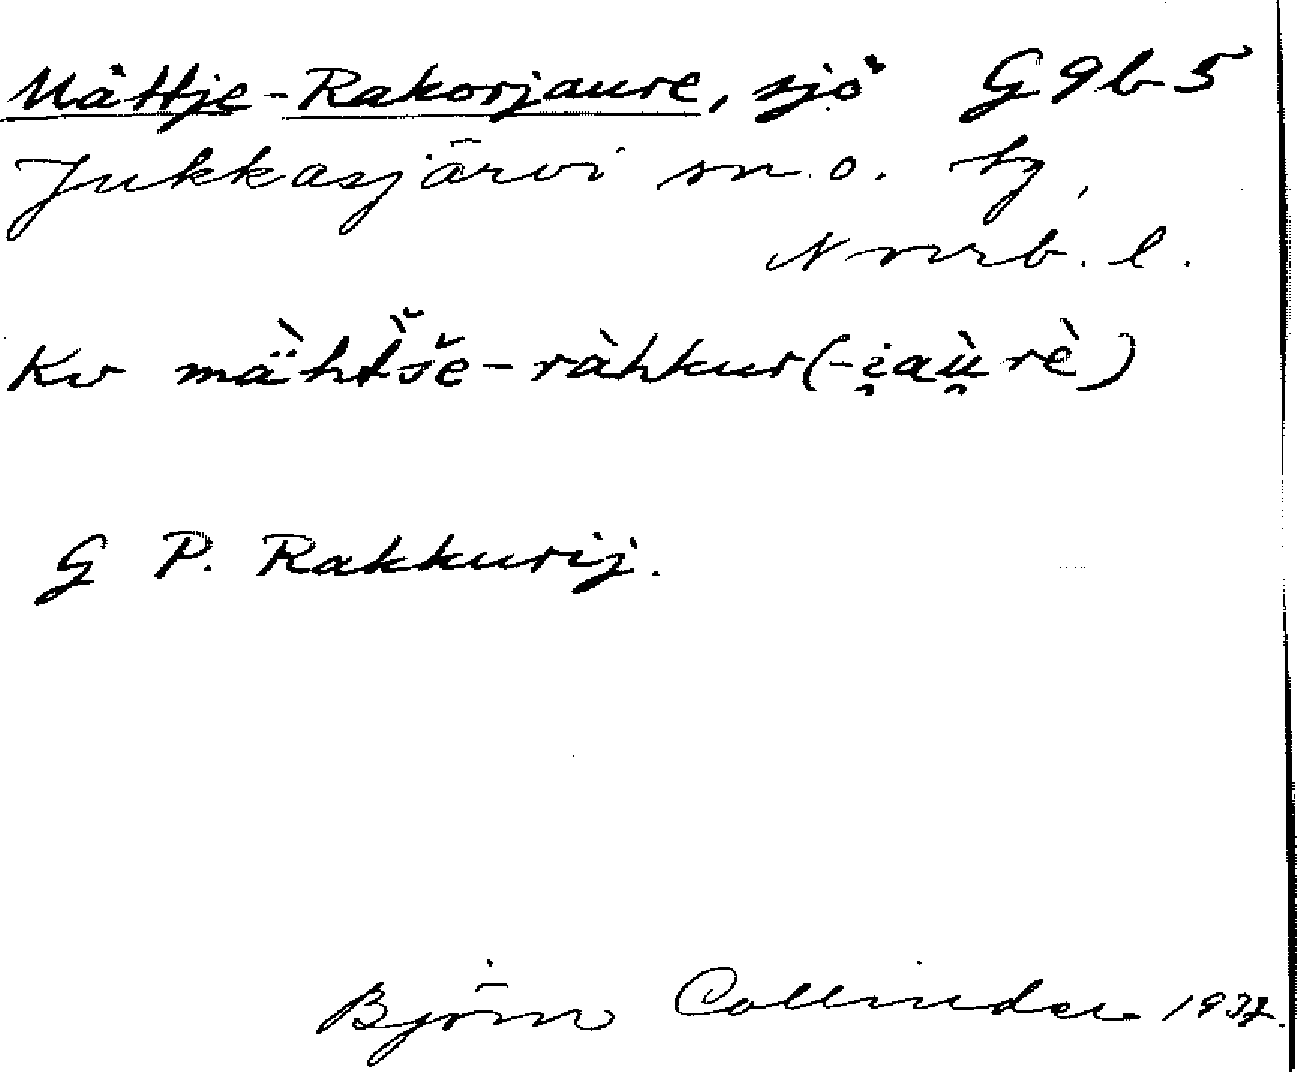 Mättje-Rakorjaure, sjö G9b5
Jukkasjärvi sn.o. tg,
Norrb. l.
Kv mä̀htšĕ-ràhkur(-i̯aù̯rè)
G P. Rakkurij.
Björn Collinder 1937.